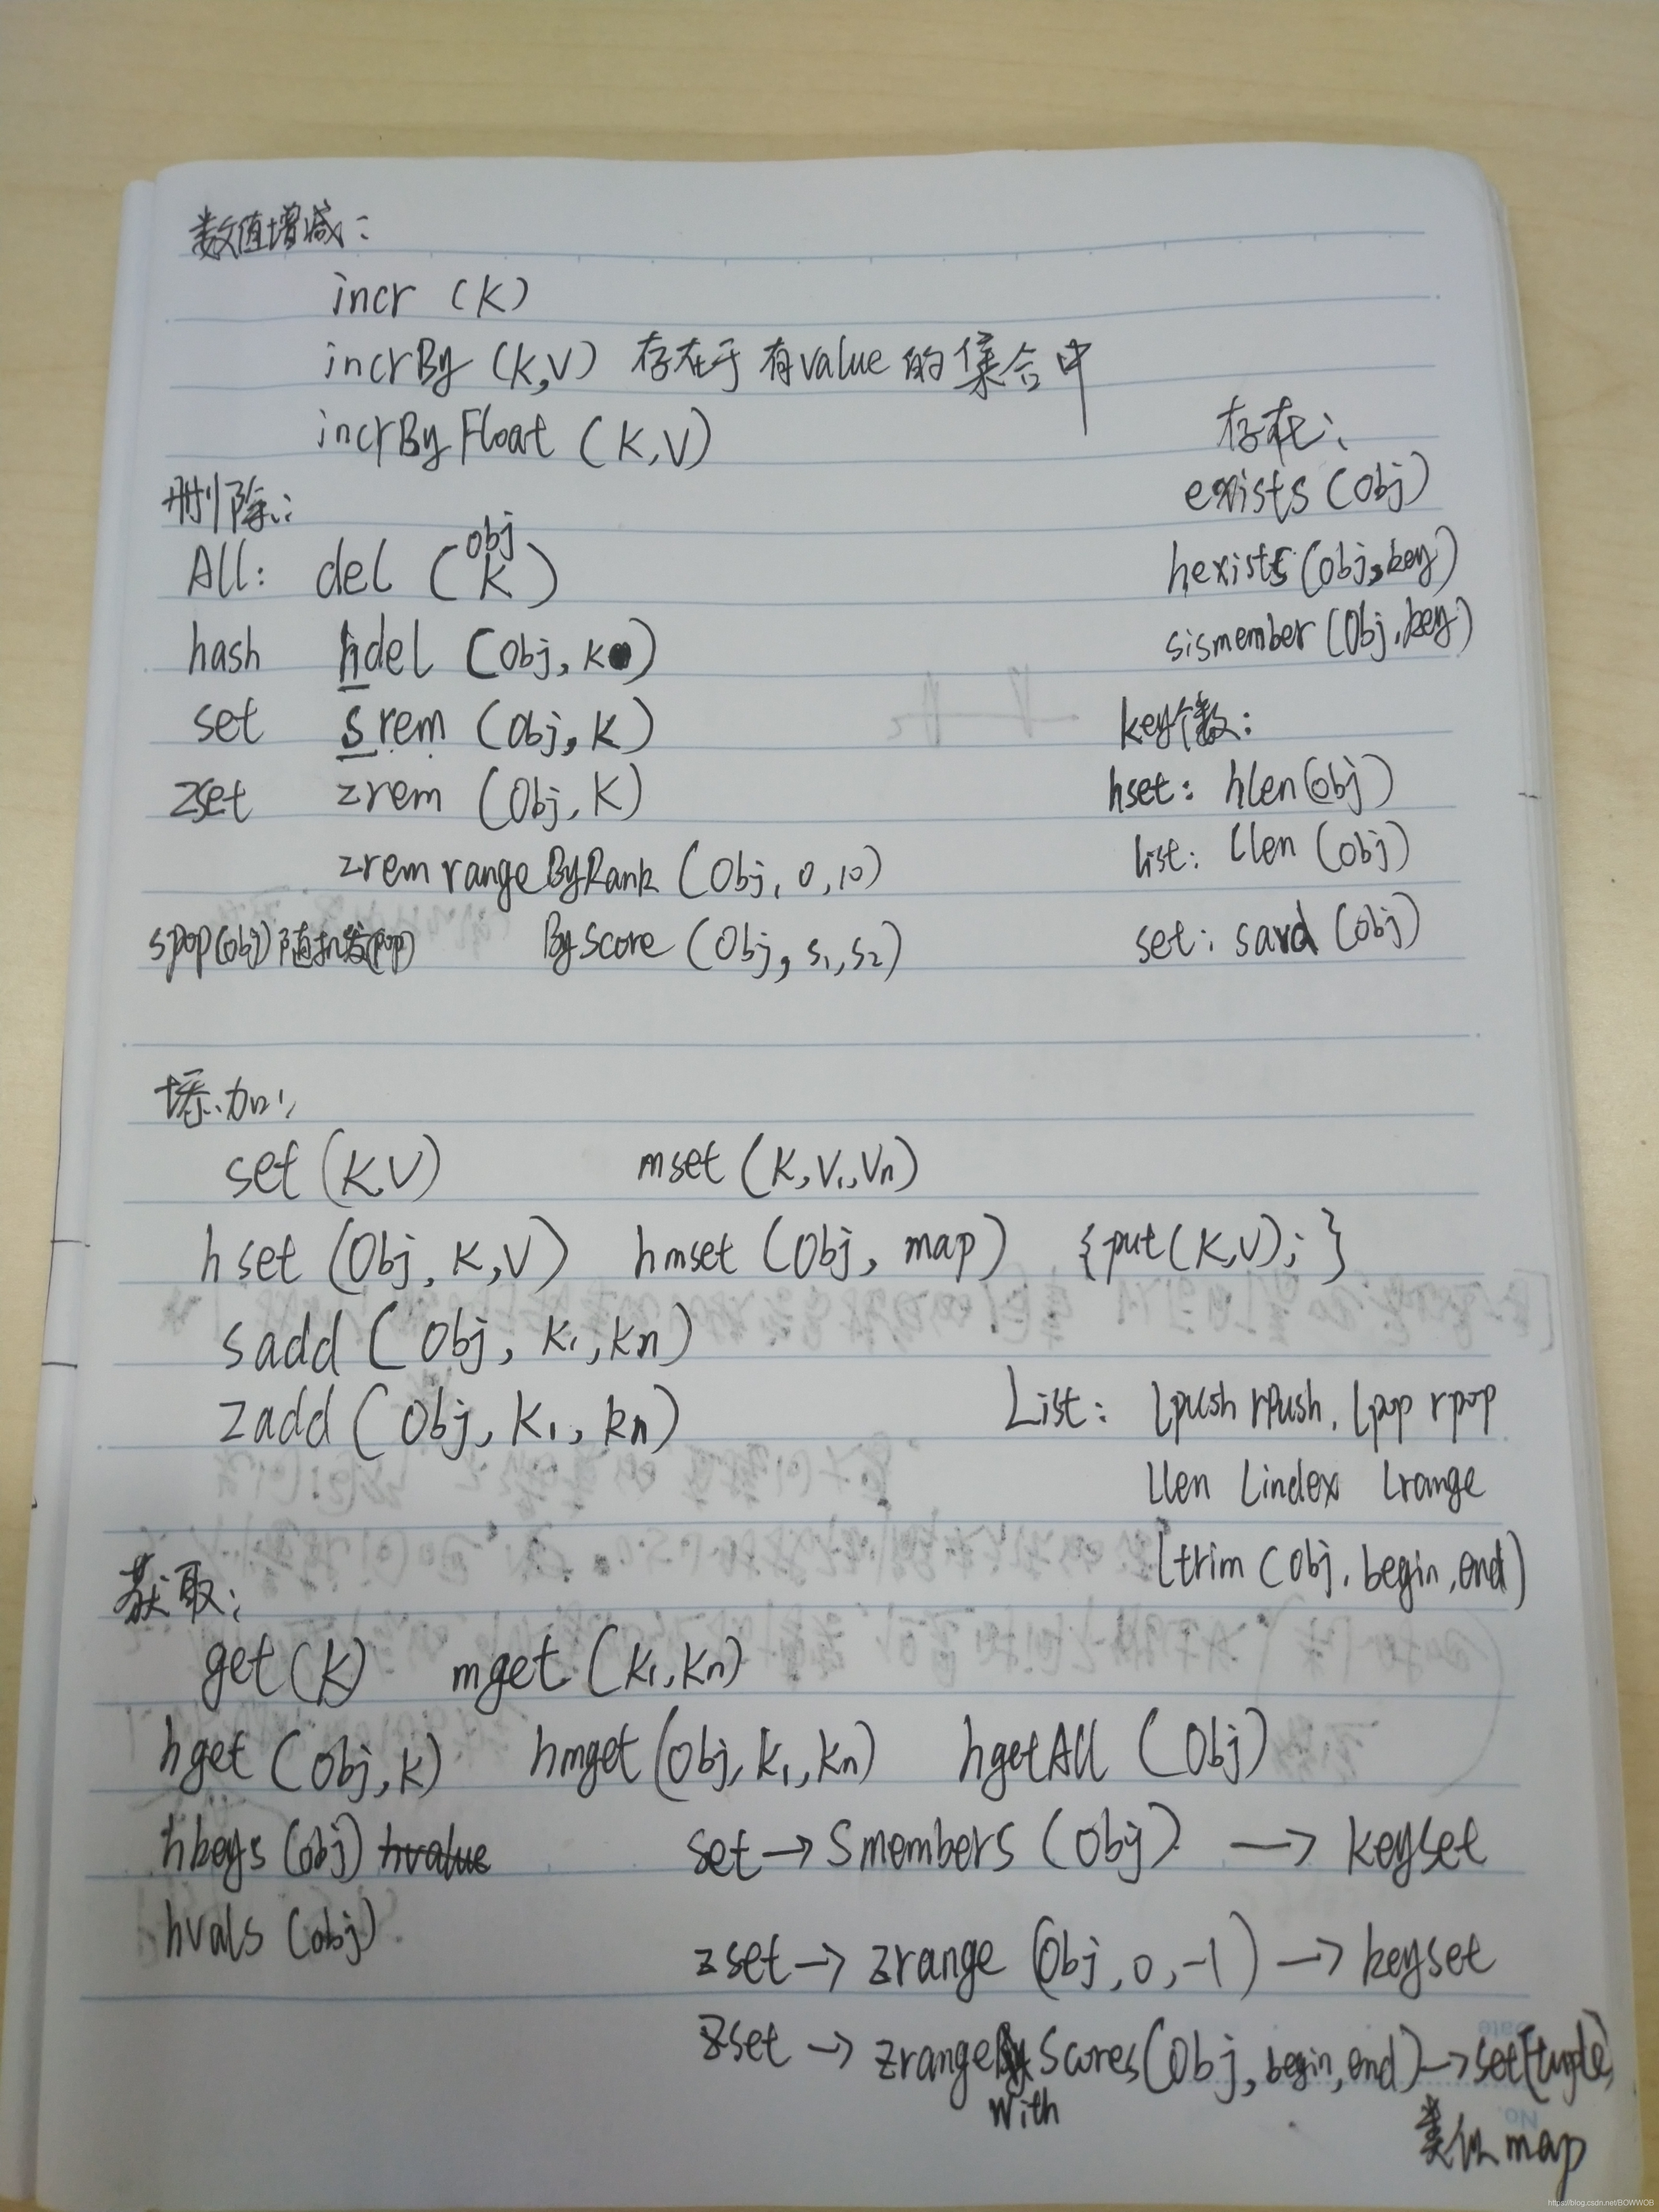 数值增减:
incr (K)
incrBy (K,V) 存在于有value的集合中
incrByFloat (K,V)
删除:
All: del (K) obj
hash hdel (Obj, K)
set srem (Obj, K)
zset zrem (Obj, K)
zremrangeByRank (Obj, 0, 10)
spop(obj) 随机(pop) ByScore (Obj, s1, s2)
存在:
exists (Obj)
hexists (Obj, key)
sismember (Obj, key)
key个数:
hset: hlen(obj)
list: llen (obj)
set: (obj)
添加:
set (K,V) mset (K, V1, Vn)
hset (Obj, K, V) hmset (Obj, map) {put(K,V);}
sadd (Obj, K1, Kn)
zadd (Obj, K1, kn)
List: lpush rPush, lpop rpop
llen lindex lrange
ltrim (Obj, begin, end)
获取:
get (K) mget (K1, Kn)
hget (Obj, K) hmget (Obj, K1, Kn) hgetAll (Obj)
hkeys (obj) hvalue
hvals (obj)
set → Smembers (Obj) → keyset
zset → zrange (Obj, 0, -1) → keyset
zset → zrange With Scores (Obj, begin, end) → set[tuple]
类似map
Date
No.
https://blog.csdn.net/BOWWOB